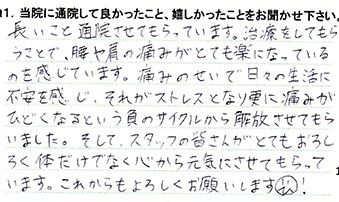 1. 当院に通院して良かったこと、嬉しかったことをお聞かせ下さい。
長いこと通院させてもらっています。治療をしてもら
うことで、腰や肩の痛みがとても楽になっている
のを感じています。痛みのせいで日々の生活に
不安を感じ、それがストレスとなり更に痛みが
ひどくなるという負のサイクルから解放させてもら
いました。そして、スタッフの皆さんがとてもおもし
ろく体だけでなく心から元気にさせてもらって
います。これからもよろしくお願いします!